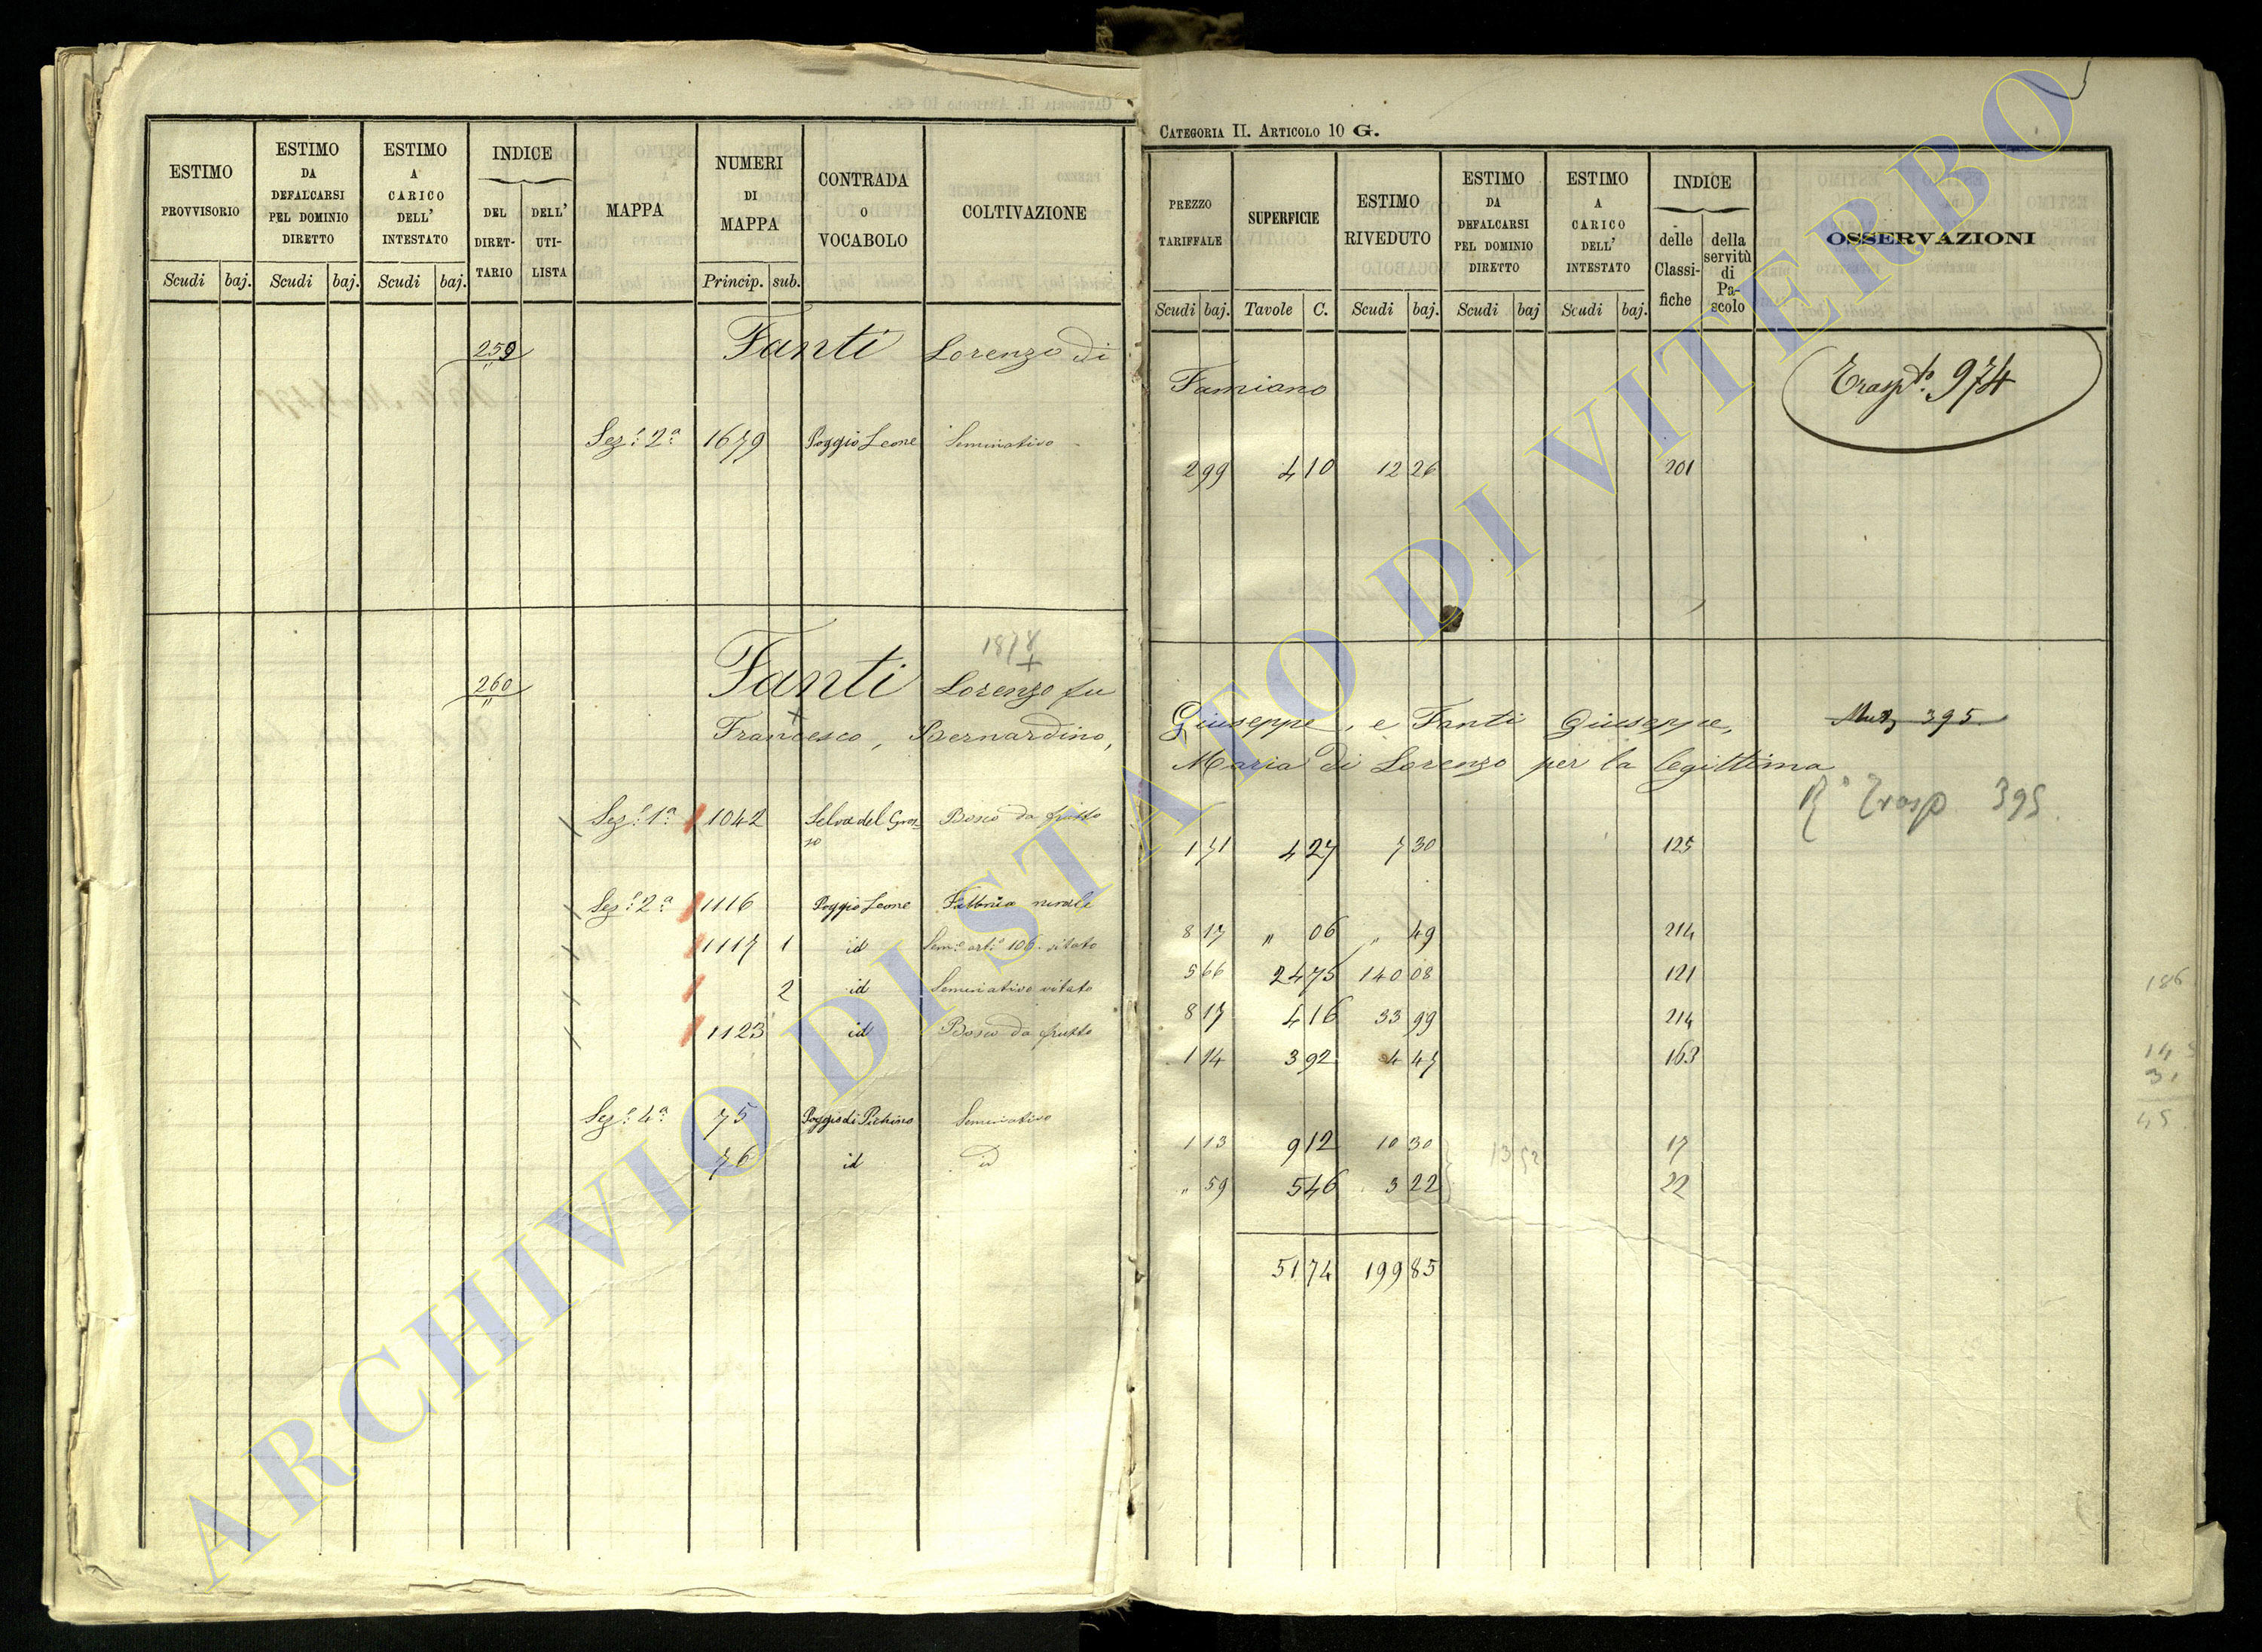 CATEGORIA II. ARTICOLO 10 G.
ESTIMO PROVVISORIO Scudi baj.
ESTIMO DA DEFALCARSI PEL DOMINIO DIRETTO Scudi baj.
ESTIMO A CARICO DELL' INTESTATO Scudi baj.
INDICE DEL DIRETTARIO DELL' UTILISTA
MAPPA
NUMERI DI MAPPA Princip. sub.
CONTRADA O VOCABOLO
COLTIVAZIONE
PREZZO TARIFFALE Scudi baj.
SUPERFICIE Tavole C.
ESTIMO RIVEDUTO Scudi baj.
ESTIMO DA DEFALCARSI PEL DOMINIO DIRETTO Scudi baj
ESTIMO A CARICO DELL' INTESTATO Scudi baj.
INDICE delle Classifiche della servitù di Pascolo
OSSERVAZIONI
259 Fanti Lorenzo di Famiano Trasp.to 974
Sez.e 2a 1679 Poggio Leone Seminativo 2 99 4 10 12 26 201
1878
260 Fanti Lorenzo fu
Francesco, Bernardino, Giuseppe, e Fanti Giuseppe, Mut 395
Maria di Lorenzo per la legittima
Trasp 395
Sez.e 1a 1042 Selva del Grosso Bosco da frutto 1 71 4 27 7 30 125
Sez.e 2a 1116 Poggio Leone Fabbrica rurale 8 17 " 06 " 49 214
1117 1 id Sem.o art.o 106. vitato 5 66 24 75 140 08 121
2 id Seminativo vitato 8 17 4 16 33 99 214
1123 id Bosco da frutto 1 14 3 92 4 47 163
Sez.e 4a 75 Poggio di Pichino Seminativo 1 13 9 12 10 30 17
13 52
76 id id " 59 5 46 3 22 22
51 74 199 85
186
45
ARCHIVIO DI STATO DI VITERBO